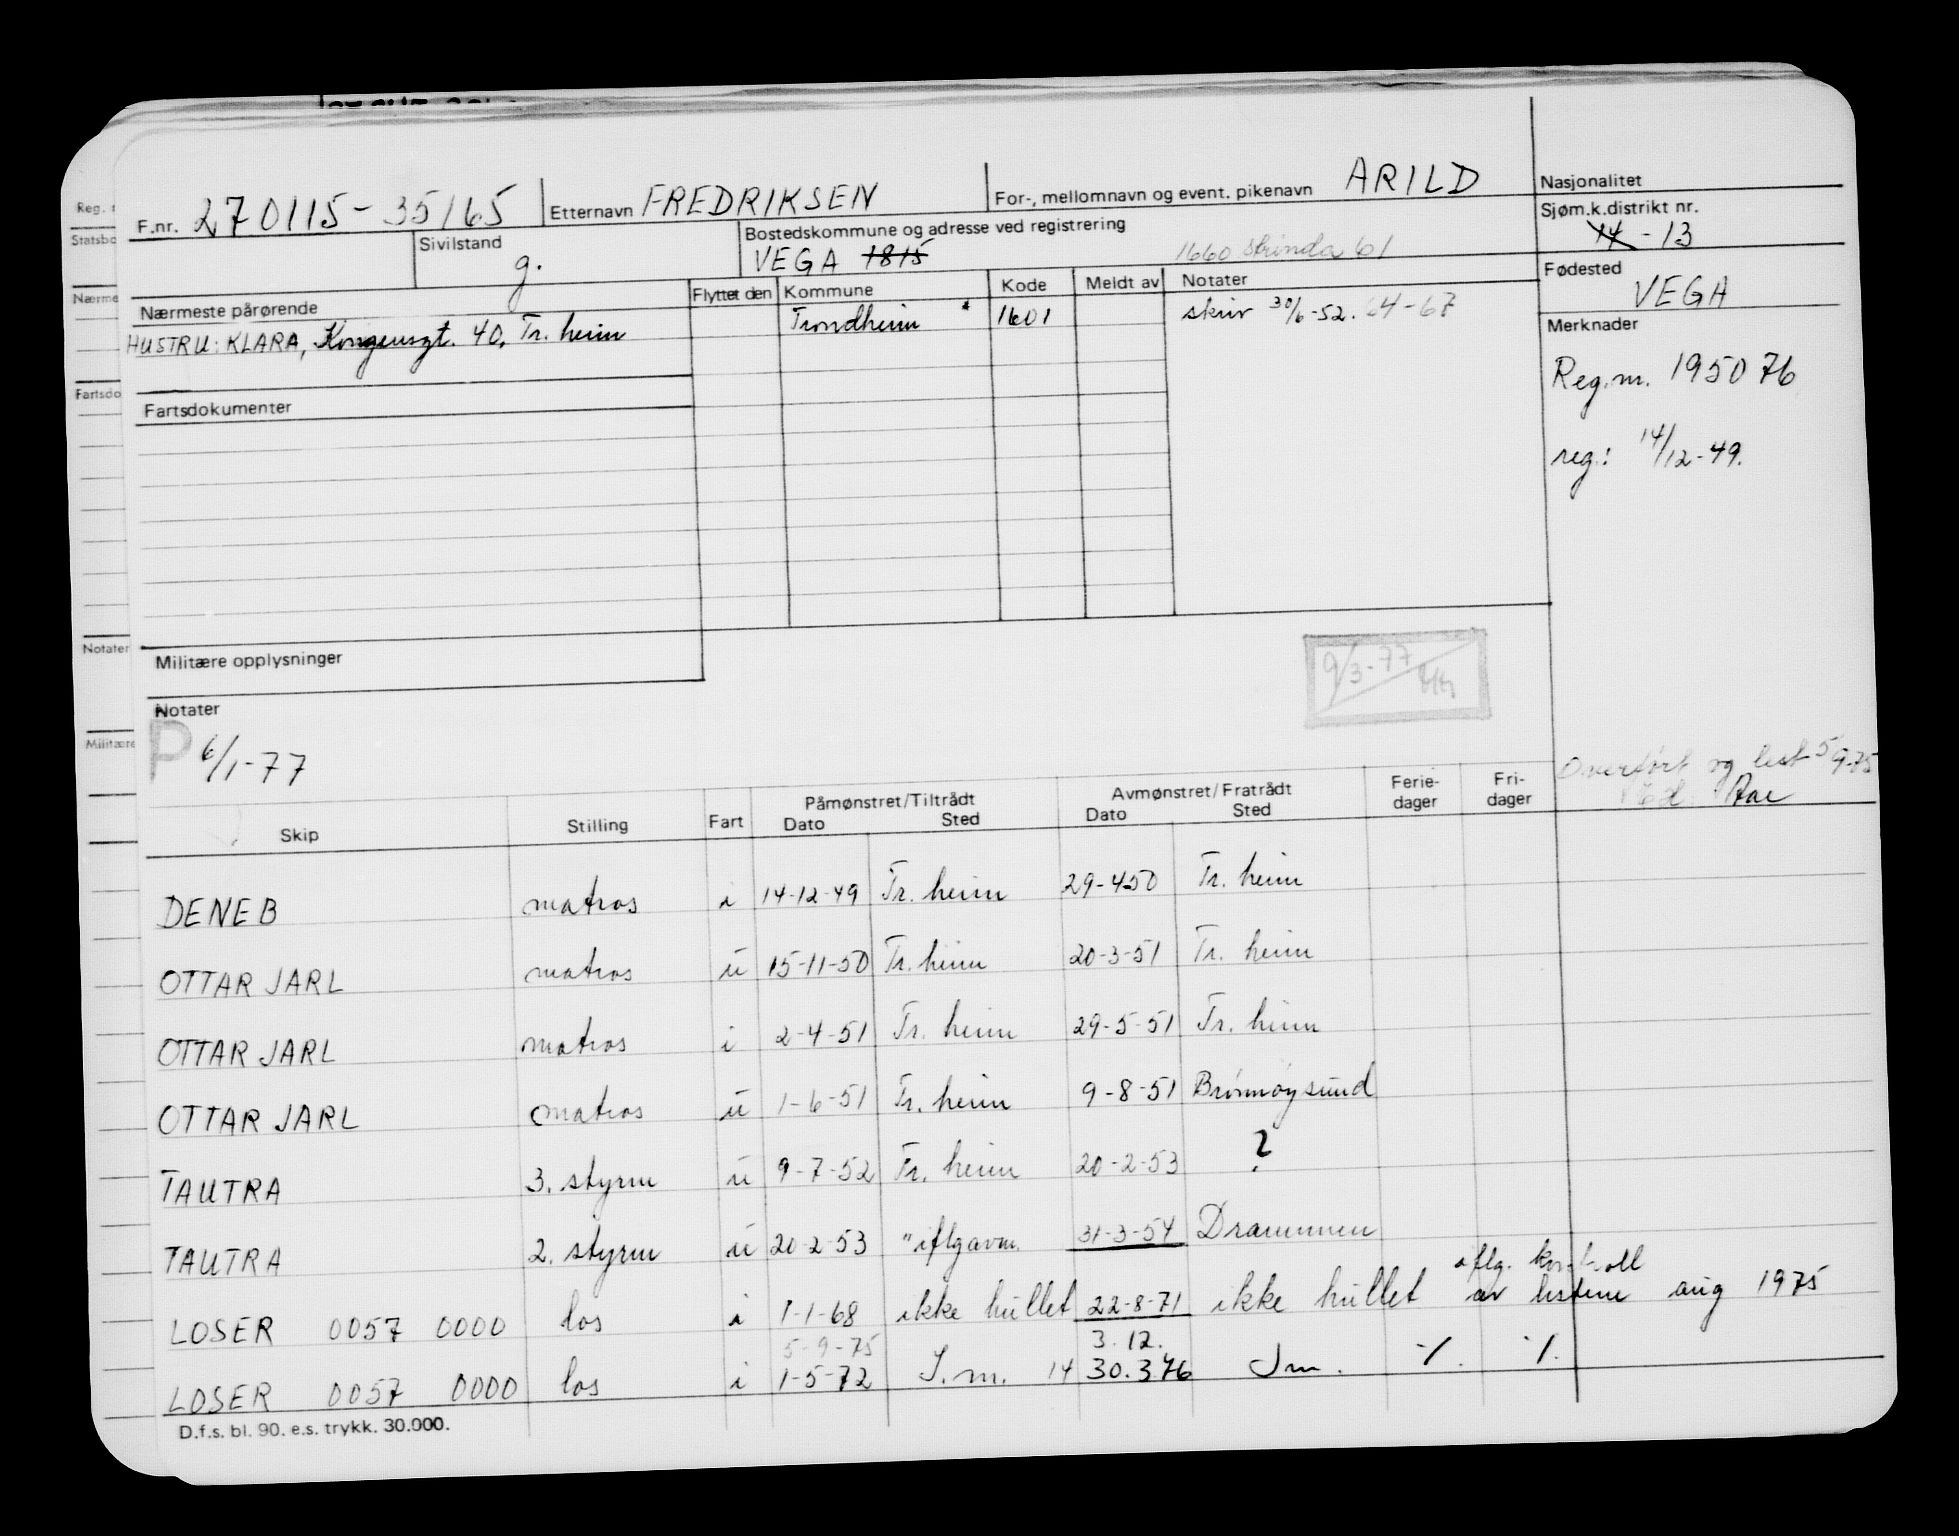 F.nr. 270115-35165 Etternavn FREDRIKSEN For-, mellomnavn og event. pikenavn ARILD
Nasjonalitet
Sivilstand g.
Bostedskommune og adresse ved registrering
VEGA 1815 1660 Strinda 61
Sjøm.k.distrikt nr.
14 - 13
Nærmeste pårørende
HUSTRU: KLARA, Kongensgt. 40, Tr. heim
Flyttet den Kommune Kode Meldt av Notater
Trondheim 1601 skriv 30/6-52. 64-67
Fødested
VEGA
Merknader
Reg.nr. 195076
reg.: 14/12-49.
Fartsdokumenter
Militære opplysninger
9/3-77
Notater
P 6/1-77
Overført og lest 5/9-75
Skip Stilling Fart Påmønstret/Tiltrådt Dato Sted Avmønstret/Fratrådt Dato Sted Ferie-dager Fri-dager
DENEB matros i 14-12-49 Tr. heim 29-4-50 Tr. heim
OTTAR JARL matros u 15-11-50 Tr. heim 20-3-51 Tr. heim
OTTAR JARL matros i 2-4-51 Tr. heim 29-5-51 Tr. heim
OTTAR JARL matros u 1-6-51 Tr. heim 9-8-51 Brønnøysund
TAUTRA 3. styrm u 9-7-52 Tr. heim 20-2-53 ?
TAUTRA 2. styrm u 20-2-53 "iflg avm. 31-3-54 Drammen
LOSER 0057 0000 los i 1-1-68 ikke hullet 22-8-71 ikke hullet iflg. kontroll av listene aug 1975
5-9-75 3.12.
LOSER 0057 0000 los i 1-5-72 S.m. 14 30.3.76 Sm. -/. -/.
D.f.s. bl. 90. e.s. trykk. 30.000.